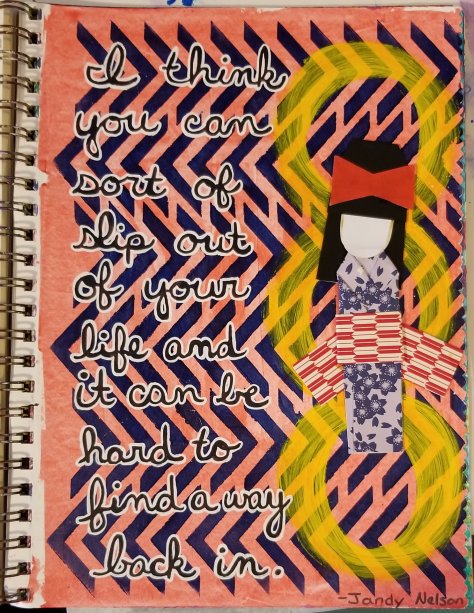 I think
you can
sort of
slip out
of your
life and
it can be
hard to
find a way
back in.
-Jandy Nelson